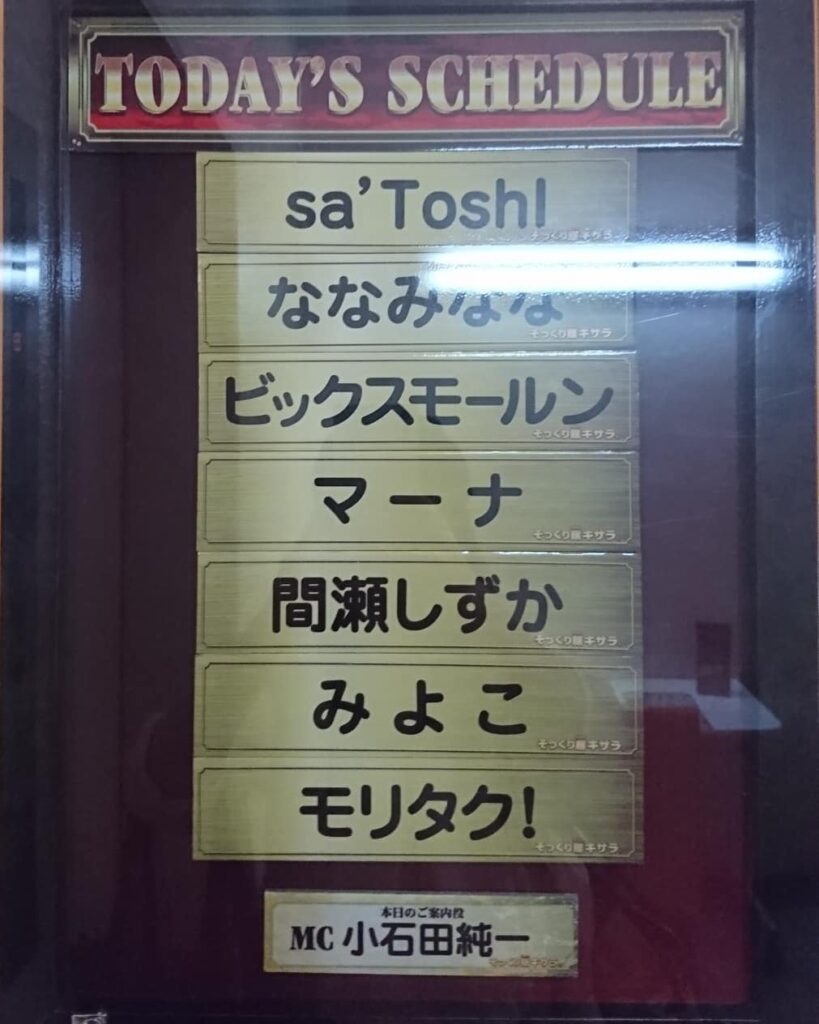 TODAY'S SCHEDULE
sa'ToshI
そっくり館キサラ
ななみなな
そっくり館キサラ
ビックスモールン
そっくり館キサラ
マーナ
そっくり館キサラ
間瀬しずか
そっくり館キサラ
みよこ
そっくり館キサラ
モリタク!
そっくり館キサラ
本日のご案内役
MC 小石田純一
そっくり館キサラ